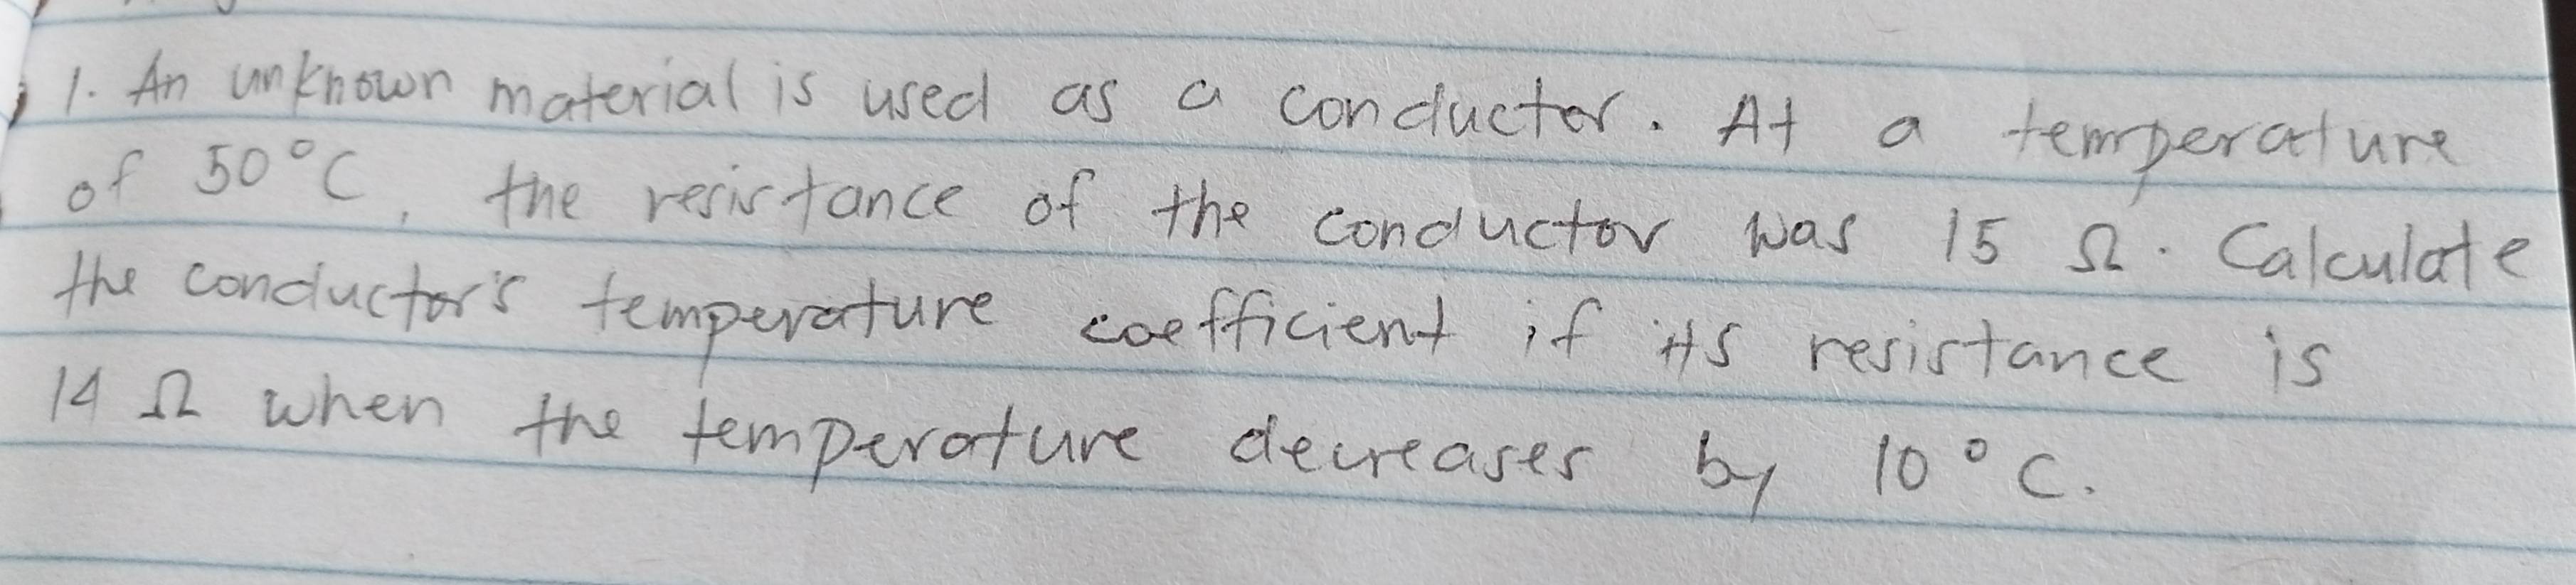 1. An unknown material is used as a conductor. At a temperature
of 50°C, the resistance of the conductor was 15 Ω. Calculate
the conductor's temperature coefficient if its resistance is
14 Ω when the temperature decreases by 10°C.